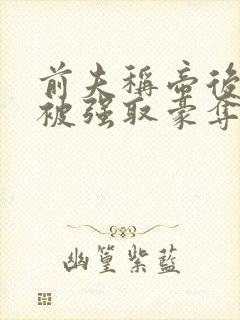 前夫稱帝後
被强取豪奪
幽篁紫藍